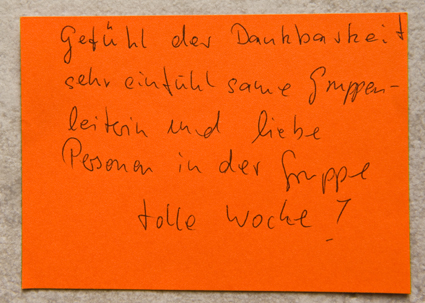 Gefühl der Dankbarkeit
sehr einfühlsame Gruppen-
leiterin und liebe
Personen in der Gruppe
tolle Woche!